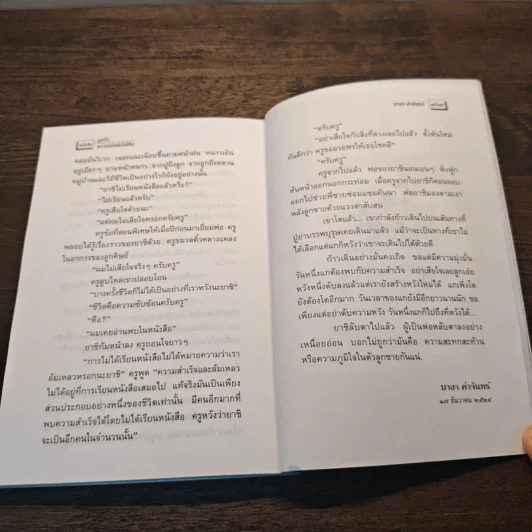 ลูกป่า
ของอันวิเวก เนอะคลองเฉียบชื้นยามหน้าฝน หนาวเย็น
หมู่บ้านและวิถีชีวิตเป็นอย่างไรก็ยังอยู่อย่างนั้น
"ยาซิไม่เรียนหนังสือแล้วหรือ?"
"ไม่เรียนแล้วครับ"
"ครูเสียใจด้วยนะ"
"แต่ผมไม่เสียใจหรอกครับครู"
ครูชัยที่สอนพิเศษให้เมื่อปีก่อนมาเยี่ยมพ่อ ครู
พลอยได้รู้เรื่องราวของยาซิด้วย ครูขมวดคิ้วคลางแคลง
ในอาการของลูกศิษย์
"ผมไม่เสียใจจริงๆ ครับครู"
ครูลูบไหล่เขาปลอบโยน
"บางครั้งชีวิตก็ไม่ได้เป็นอย่างที่เราหวังนะยาซิ"
"ชีวิตคือความซับซ้อนครับครู"
"หือ?"
"ผมเคยอ่านพบในหนังสือ"
ยาซิก้มหน้าลง ครูถอนใจยาวๆ
"การไม่ได้เรียนหนังสือไม่ได้หมายความว่าเรา
ล้มเหลวหรอกนะยาซิ" ครูพูด "ความสำเร็จและล้มเหลว
ไม่ได้อยู่ที่การเรียนหนังสือเสมอไป แท้จริงมันเป็นเพียง
ส่วนประกอบอย่างหนึ่งของชีวิตเท่านั้น มีคนอีกมากที่
พบความสำเร็จได้โดยไม่ได้เรียนหนังสือ ครูหวังว่ายาซิ
จะเป็นอีกคนในจำนวนนั้น"
มาลา คำจันทร์
"ครับครู"
"อย่าเสียใจกับสิ่งที่ล่วงเลยไปแล้ว ตั้งต้นใหม่
กันดีกว่า ครูขออวยพรให้เธอโชคดี"
"ครับครู"
ครูจากไปแล้ว พ่อของยาซินอนเอนๆ พิงฟูก
หันหน้าออกนอกกระท่อม เมื่อครูจากไปยาซิก็ค่อยรอบ
ออกไปช่วยพี่ชายซ่อมแซมคันนา พ่อยาซิมองตามเงา
หลังลูกชายด้วยแววตาสับสน
เขาโตแล้ว... เขากำลังก้าวเดินไปบนเส้นทางที่
ปู่ย่าบรรพบุรุษเคยเดินมาแล้ว แม้ว่าจะเป็นทางที่เขาไม่
ได้เลือกแต่แกก็หวังว่าเขาจะเดินไปได้ด้วยดี
ก้าวเดินอย่างมั่นคงเถิด ขอแต่มีความมุ่งมั่น
วันหนึ่งแกต้องพบกับความสำเร็จ อย่าเสียใจเลยลูกเอ๋ย
หวังหนึ่งดับลงแล้วแต่เรายังสร้างหวังใหม่ได้ แกเพิ่งโต
ยังต้องโตอีกมาก วันเวลาของแกยังมีอีกยาวนานนัก ขอ
เพียงแต่อย่าดับความหวัง วันหนึ่งแกก็ไปถึงที่หวังได้...
ยาซิลับตาไปแล้ว ผู้เป็นพ่อหลับตาลงอย่าง
เหนื่อยอ่อน บอกไม่ถูกว่ามันคือ ความสะทกสะท้าน
หรือความภูมิใจในตัวลูกชายกันแน่.
มาลา คำจันทร์
๑๗ ธันวาคม ๒๕๒๔